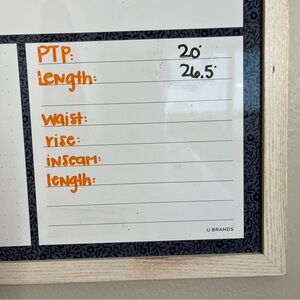 PTP: 20"
Length: 26.5"
waist:
rise:
inseam:
length:
U BRANDS